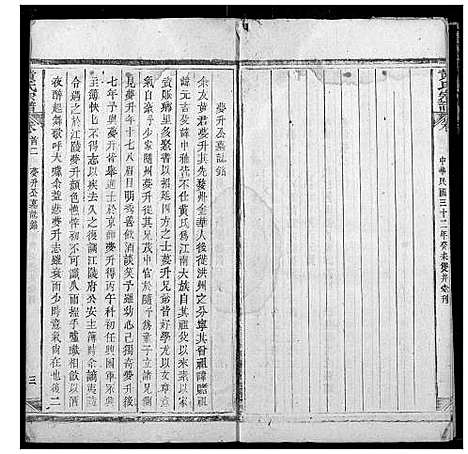 中華民國三十二年癸未雙井堂刊
夢升公墓誌銘
余友黃君夢升其先婺州金華人後徙洪州之分寧其曾祖諱贍祖
諱元吉父諱中雅不仕黃氏爲江南大族自其祖父以來樂以家
貲賑鄉里多聚四方之士夢升兄弟皆好學尤以文章意
氣自豪予少家隨州夢升從其兄茂宗官於隨予爲童子立諸兄側
見夢升年十七八眉目明秀善飲酒談笑予雖幼心已獨奇夢升後
七年予與夢升皆舉進士於京師夢升得丙科初任興國軍永興
主簿怏怏不得志以疾去久之復調江陵府公安主簿時余謫夷陵
令遇之於江陵夢升顏色憔悴初不可識久而握手噓欷相飲以酒
夜醉起舞歌呼大噱余益悲夢升志雖衰而少時意氣尚在也後二
黃氏宗譜
卷首二
夢升公墓誌銘
三